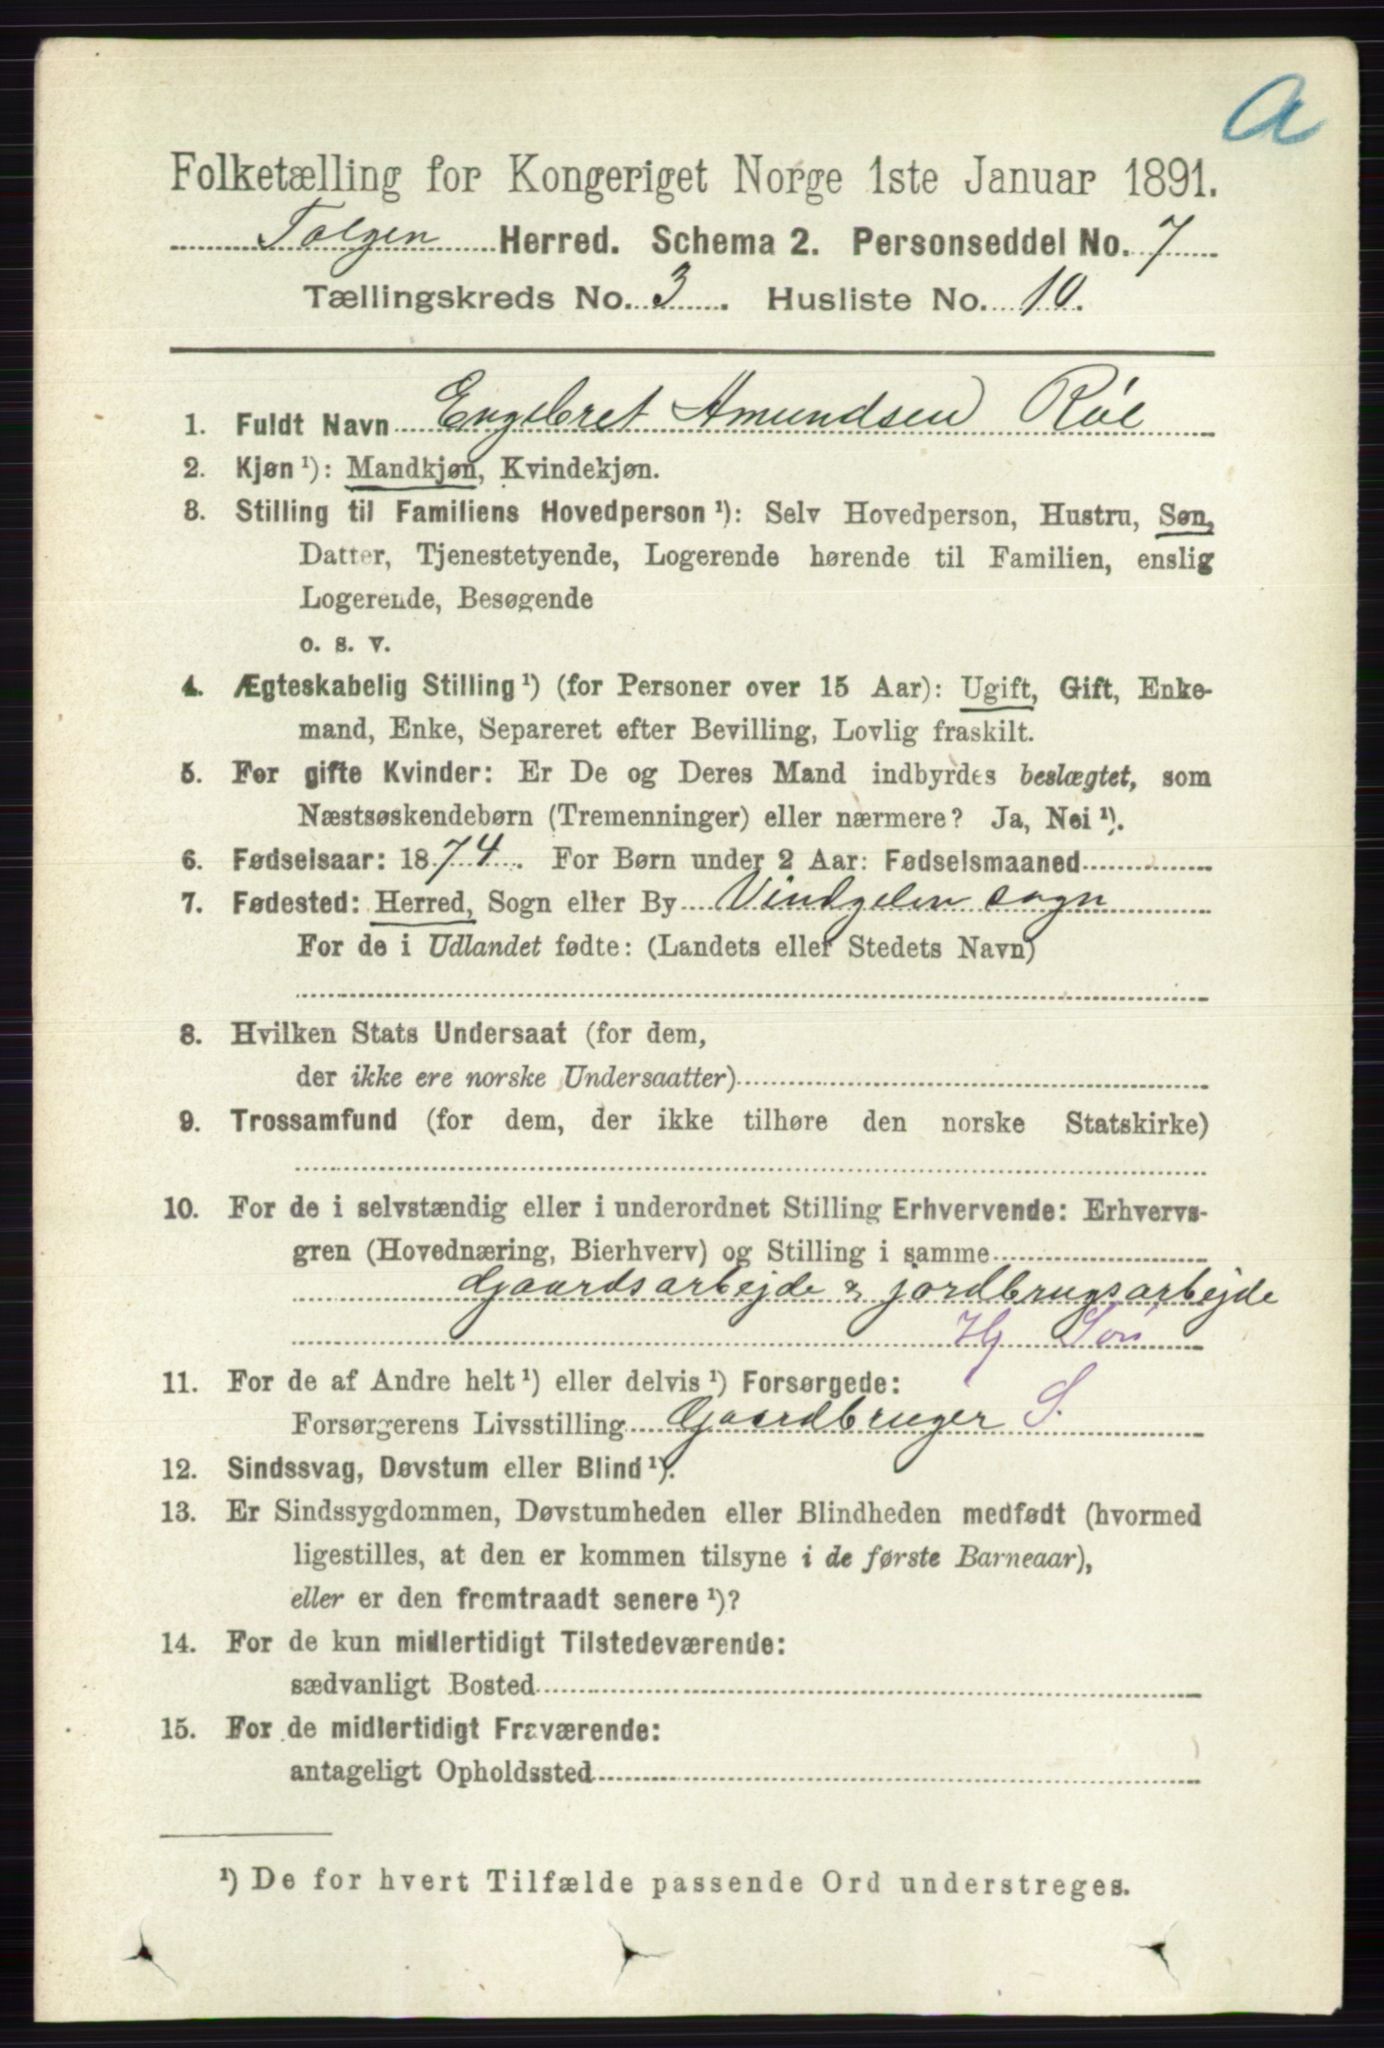 A
Folketælling for Kongeriget Norge 1ste Januar 1891.
Tolgen Herred. Schema 2. Personseddel No. 7
Tællingskreds No. 3. Husliste No. 10.
1. Fuldt Navn Engebret Amundsen Røe
2. Kjøn ¹): Mandkjøn, Kvindekjøn.
3. Stilling til Familiens Hovedperson ¹): Selv Hovedperson, Hustru, Søn,
Datter, Tjenestetyende, Logerende hørende til Familien, enslig
Logerende, Besøgende
o. s. v.
4. Ægteskabelig Stilling ¹) (for Personer over 15 Aar): Ugift, Gift, Enke-
mand, Enke, Separeret efter Bevilling, Lovlig fraskilt.
5. For gifte Kvinder: Er De og Deres Mand indbyrdes beslægtet, som
Næstsøskendebørn (Tremenninger) eller nærmere? Ja, Nei ¹).
6. Fødselsaar: 1874. For Børn under 2 Aar: Fødselsmaaned
7. Fødested: Herred, Sogn eller By Vindgelen sogn
For de i Udlandet fødte: (Landets eller Stedets Navn)
8. Hvilken Stats Undersaat (for dem,
der ikke ere norske Undersaatter)
9. Trossamfund (for dem, der ikke tilhøre den norske Statskirke)
10. For de i selvstændig eller i underordnet Stilling Erhvervende: Erhvervs-
gren (Hovednæring, Bierhverv) og Stilling i samme
Gaardsarbejde & jordbrugsarbejde
Hj Søn
11. For de af Andre helt ¹) eller delvis ¹) Forsørgede:
Forsørgerens Livsstilling Gaardbruger S.
12. Sindssvag, Døvstum eller Blind ¹).
13. Er Sindssygdommen, Døvstumheden eller Blindheden medfødt (hvormed
ligestilles, at den er kommen tilsyne i de første Barneaar),
eller er den fremtraadt senere ¹)?
14. For de kun midlertidigt Tilstedeværende:
sædvanligt Bosted
15. For de midlertidigt Fraværende:
antageligt Opholdssted
¹) De for hvert Tilfælde passende Ord understreges.